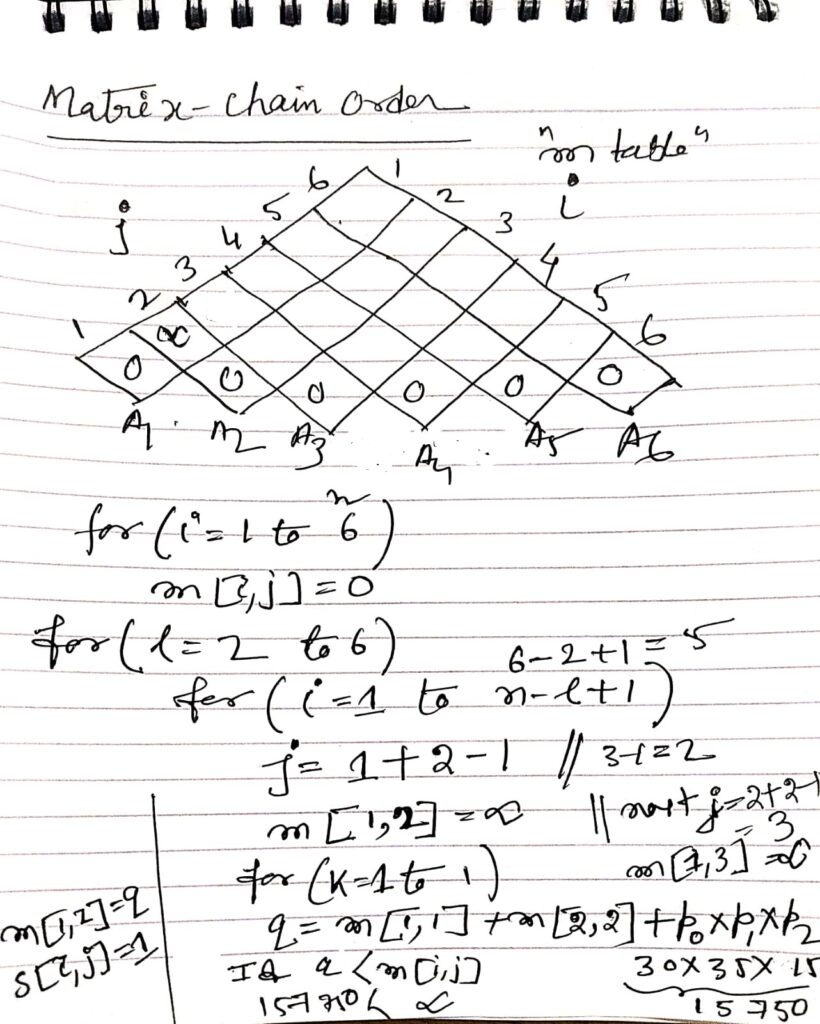 Matrix-chain Order
"m table"
j
i
6 1
5 2
4 3
3 4
2 5
1 ∞ 6
0 0 0 0 0 0
A1 A2 A3 A4 A5 A6
n
for (i=1 to 6)
m[i,j]=0
for (l=2 to 6)
6-2+1=5
for (i=1 to n-l+1)
j=1+2-1 // 3-1=2
m[1,2]=∞ // next j=2+2-1
=3
for (K=1 to 1)
m[1,2]=q
q=m[1,1]+m[2,2]+p0xp1xp2
s[i,j]=1
If q<m[i,j] 30x35x15
< ∞ 15750